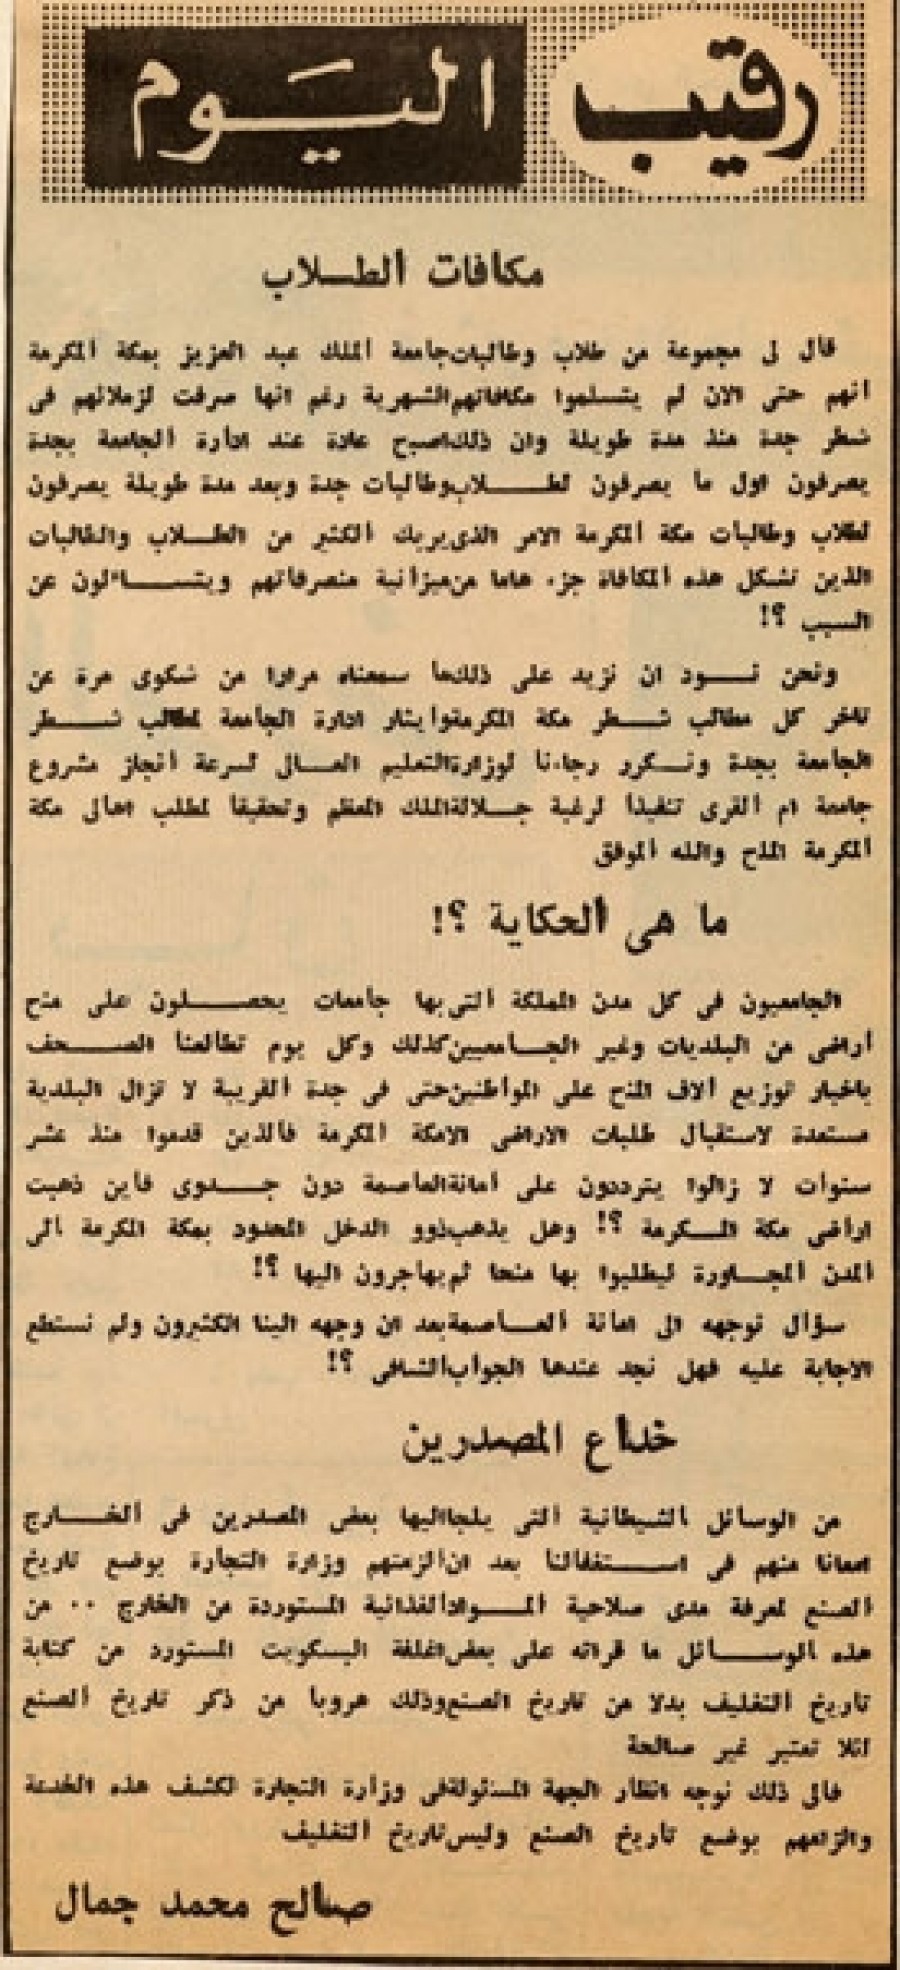 رقيب اليوم
مكافات الطلاب
قال لى مجموعة من طلاب وطالبات جامعة الملك عبد العزيز بمكة المكرمة
انهم حتى الان لم يتسلموا مكافاتهم الشهرية رغم انها صرفت لزملائهم فى
شطر جدة منذ مدة طويلة وان ذلك اصبح عادة عند ادارة الجامعة بجدة
يصرفون اول ما يصرفون لطلاب وطالبات جدة وبعد مدة طويلة يصرفون
لطلاب وطالبات مكة المكرمة الامر الذى يربك الكثير من الطلاب والطالبات
الذين تشكل هذه المكافاة جزء هاما من ميزانية منصرفاتهم ويتساءلون عن
السبب ؟!
ونحن نود ان نزيد على ذلك ما سمعناه مرارا من شكوى مرة عن
تاخر كل مطالب شطر مكة المكرمة وايثار ادارة الجامعة لمطالب شطر
الجامعة بجدة ونكرر رجاءنا لوزارة التعليم العالى لسرعة انجاز مشروع
جامعة ام القرى تنفيذا لرغبة جلالة الملك المعظم وتحقيقا لمطلب اهالى مكة
المكرمة الملح والله الموفق
ما هى الحكاية ؟!
الجامعيون فى كل مدن المملكة التى بها جامعات يحصلون على منح
أراضى من البلديات وغير الجامعيين كذلك وكل يوم تطالعنا الصحف
باخبار توزيع آلاف المنح على المواطنين حتى فى جدة القريبة لا تزال البلدية
مستعدة لاستقبال طلبات الاراضى الامكة المكرمة فالذين قدموا منذ عشر
سنوات لا زالوا يترددون على أمانة العاصمة دون جدوى فاين ذهبت
اراضى مكة المكرمة ؟! وهل يذهب ذوو الدخل المحدود بمكة المكرمة الى
المدن المجاورة ليطلبوا بها منحا ثم يهاجرون اليها ؟!
سؤال نوجهه الى امانة العاصمة بعد ان وجهه الينا الكثيرون ولم نستطع
الاجابة عليه فهل نجد عندها الجواب الشافى ؟!
خداع المصدرين
من الوسائل الشيطانية التى يلجا اليها بعض المصدرين فى الخارج
امعانا منهم فى استغفالنا بعد ان الزمتهم وزارة التجارة بوضع تاريخ
الصنع لمعرفة مدى صلاحية المواد الغذائية المستوردة من الخارج ٠٠ من
هذه الوسائل ما قراته على بعض اغلفة البسكويت المستورد من كتابة
تاريخ التغليف بدلا من تاريخ الصنع وذلك هروبا من ذكر تاريخ الصنع
لئلا تعتبر غير صالحة
فالى ذلك نوجه انظار الجهة المسئولة فى وزارة التجارة لكشف هذه الخدعة
والزامهم بوضع تاريخ الصنع وليس تاريخ التغليف
صالح محمد جمال